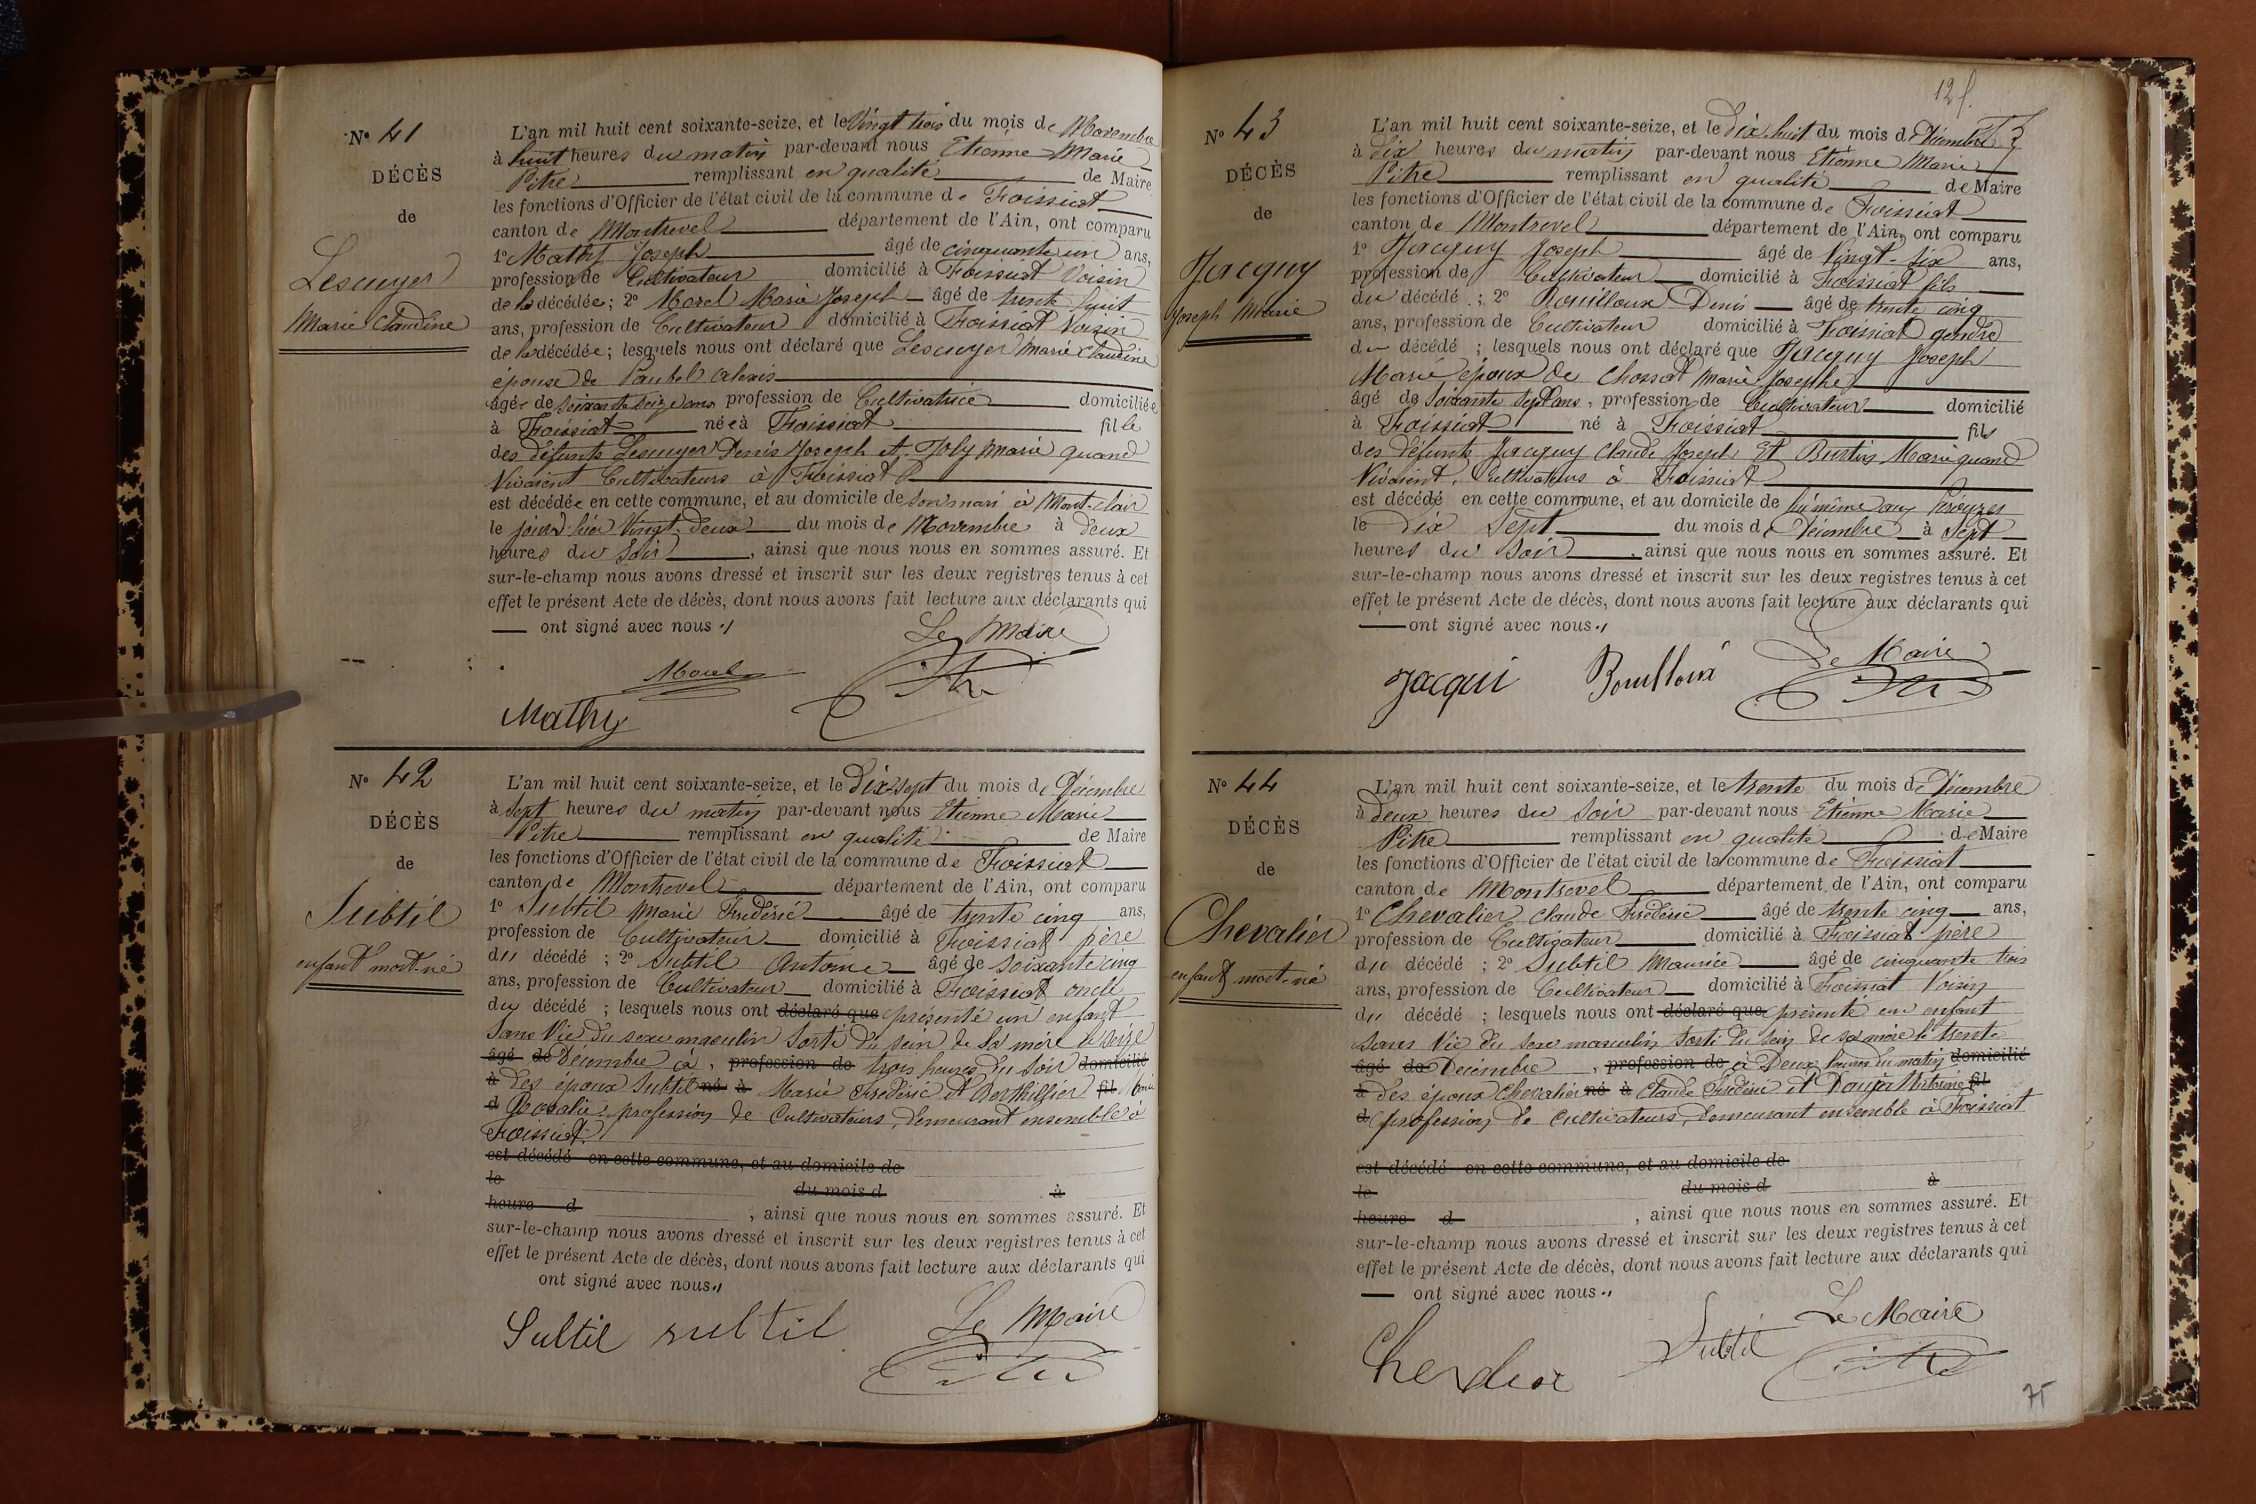 N° 41
DÉCÈS
de
Lescuyer
Marie Claudine
L'an mil huit cent soixante-seize, et le Vingt trois du mois de Novembre
à huit heures du matin par-devant nous Etienne Marie
Pitre remplissant en qualité de Maire
les fonctions d'Officier de l'état civil de la commune de Foissiat
canton de Montrevel département de l'Ain, ont comparu
1° Mathy Joseph âgé de cinquante un ans,
profession de Cultivateur domicilié à Foissiat Voisin
de la décédée; 2° Morel Marie Joseph âgé de trente huit
ans, profession de Cultivateur domicilié à Foissiat Voisin
de la décédée; lesquels nous ont déclaré que Lescuyer Marie Claudine
épouse de Paubel Alexis
âgée de soixante seize ans profession de Cultivatrice domiciliée
à Foissiat née à Foissiat fille
des défunts Lescuyer Denis Joseph et Joly Marie quand
Vivaient Cultivateurs à Foissiat
est décédée en cette commune, et au domicile de son mari à Mont-clair
le jour d'hier Vingt deux du mois de Novembre à deux
heures du Soir, ainsi que nous nous en sommes assuré. Et
sur-le-champ nous avons dressé et inscrit sur les deux registres tenus à cet
effet le présent Acte de décès, dont nous avons fait lecture aux déclarants qui
ont signé avec nous.
Le Maire
Morel
Mathy
Pitre
N° 42
DÉCÈS
de
Subtil
enfant mort-né
L'an mil huit cent soixante-seize, et le Dix sept du mois de Décembre
à Sept heures du matin par-devant nous Etienne Marie
Pitre remplissant en qualité de Maire
les fonctions d'Officier de l'état civil de la commune de Foissiat
canton de Montrevel département de l'Ain, ont comparu
1° Subtil Marie Frédéric âgé de trente cinq ans,
profession de Cultivateur domicilié à Foissiat père
du décédé ; 2° Subtil Antoine âgé de soixante cinq
ans, profession de Cultivateur domicilié à Foissiat oncle
du décédé ; lesquels nous ont déclaré que présenté un enfant
sans Vie du sexe masculin Sorti du sein de sa mère le seize
âgé de Décembre à, profession de trois heures du Soir domicilié
à des époux Subtil né à Marie Frédéric et Berthillier fil Marie
d Rosalie profession de Cultivateurs, demeurant ensemble à
Foissiat
est décédé en cette commune, et au domicile de
le du mois d à
heure d , ainsi que nous nous en sommes assuré. Et
sur-le-champ nous avons dressé et inscrit sur les deux registres tenus à cet
effet le présent Acte de décès, dont nous avons fait lecture aux déclarants qui
ont signé avec nous.
Subtil subtil Le Maire
Pitre
N° 43
DÉCÈS
de
Jacquy
Joseph Marie
L'an mil huit cent soixante-seize, et le Dix huit du mois de Décembre
à Dix heures du matin par-devant nous Etienne Marie
Pitre remplissant en qualité de Maire
les fonctions d'Officier de l'état civil de la commune de Foissiat
canton de Montrevel département de l'Ain, ont comparu
1° Jacquy Joseph âgé de Vingt-six ans,
profession de Cultivateur domicilié à Foissiat fils
du décédé ; 2° Rouilloux Denis âgé de trente cinq
ans, profession de Cultivateur domicilié à Foissiat gendre
du décédé ; lesquels nous ont déclaré que Jacquy Joseph
Marie époux de Chossat Marie Josephe
âgé de soixante Sept ans, profession de Cultivateur domicilié
à Foissiat né à Foissiat fils
des défunts Jacquy Claude Joseph Et Burtin Marie quand
Vivaient Cultivateurs à Foissiat
est décédé en cette commune, et au domicile de lui même aux
le Dix Sept du mois de Décembre à Sept
heures du Soir, ainsi que nous nous en sommes assuré. Et
sur-le-champ nous avons dressé et inscrit sur les deux registres tenus à cet
effet le présent Acte de décès, dont nous avons fait lecture aux déclarants qui
ont signé avec nous.
Jacqui Le Maire
Pitre
N° 44
DÉCÈS
de
Chevalier
enfant mort-né
L'an mil huit cent soixante-seize, et le trente du mois de Décembre
à Deux heures du Soir par-devant nous Etienne Marie
Pitre remplissant en qualité de Maire
les fonctions d'Officier de l'état civil de la commune de Foissiat
canton de Montrevel département de l'Ain, ont comparu
1° Chevalier Claude Frédéric âgé de trente cinq ans,
profession de Cultivateur domicilié à Foissiat père
du décédé ; 2° Subtil Maurice âgé de cinquante trois
ans, profession de Cultivateur domicilié à Foissiat Voisin
du décédé ; lesquels nous ont déclaré que présenté un enfant
sans Vie du sexe masculin Sorti du sein de sa mère le trente
âgé de Décembre, profession de à Deux heures du matin domicilié
à des époux Chevalier né à Claude Frédéric et Antoinie fil
d profession de Cultivateurs, demeurant ensemble à Foissiat
est décédé en cette commune, et au domicile de
le du mois d à
heure d , ainsi que nous nous en sommes assuré. Et
sur-le-champ nous avons dressé et inscrit sur les deux registres tenus à cet
effet le présent Acte de décès, dont nous avons fait lecture aux déclarants qui
ont signé avec nous.
Le Maire
Subtil
Pitre
75